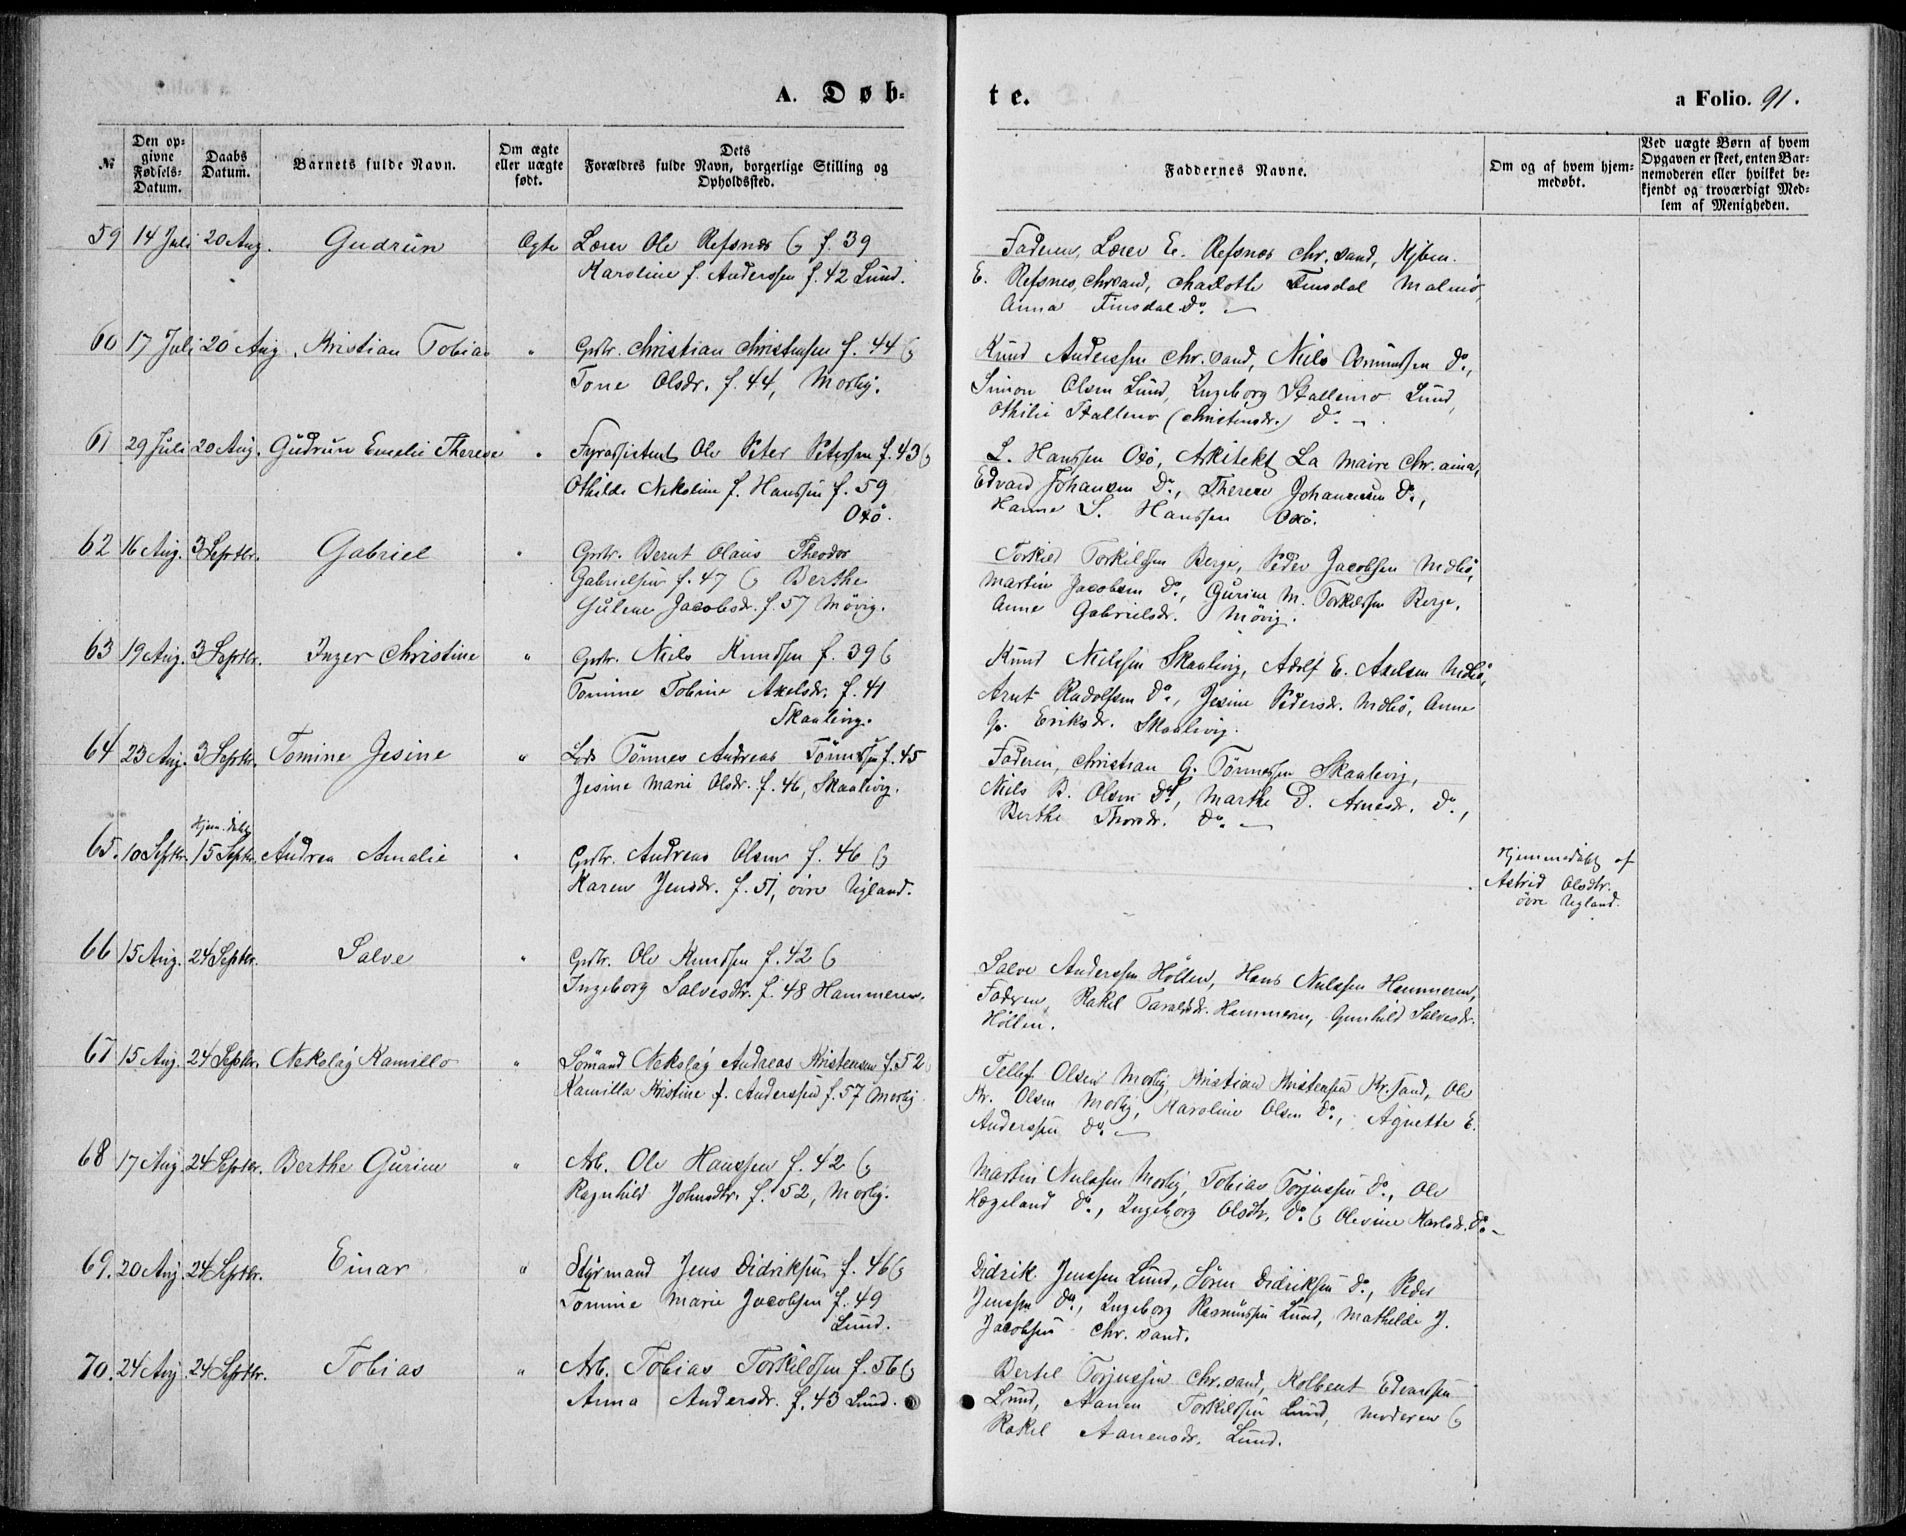 A. Døb-
te.
a Folio. 91.
№
Den opgivne Fødsels-Datum.
Daabs Datum.
Barnets fulde Navn.
Om ægte eller uægte født.
Dets Forældres fulde Navn, borgerlige Stilling og Opholdssted.
Faddernes Navne.
Om og af hvem hjemmedøbt.
Ved uægte Børn af hvem Opgaven er skeet, enten Barnemoderen eller hvilket bekjendt og troværdigt Medlem af Menigheden.
59 14 Juli 20 Aug. Gudrun Ægte Lærer Ole Refsnes & f. 39
Karoline f. Anderssen f. 42 Lund.
Faderen, Lærer E. Refsnes Chr.sand, Kjbm.
E. Refsnes, Chrsand, Charlotte Tinsdal Malmö,
Anna Tinsdal Do. –
60 17 Juli 20 Aug. Kristian Tobias " Grdbr. Christian Christensen f. 44 &
Tone Olsdr. f. 44, Mosby.
Knud Anderssen Chr.sand, Niels Asmundsen Do.,
Simon Olsen Lund, Ingeborg Stallemo Lund,
Othilie Stallemo (Christensdr.) Do. –
61 29 Juli 20 Aug. Gudrun Emelie Therese " Fyrassistent Ole Peter Petersen f. 43 &
Othilde Nikoline f. Hanssen f. 59
Oxö.
L. Hanssen Oxö, Arkitekt La Maire Chr.ania,
Edvard Johansen Do., Therese Johannesen Do.,
Hanne S. Hanssen Oxö.
62 16 Aug. 3 Septbr. Gabriel " Grdbr. Bernt Olaus Theodor
Gabrielsen f. 47 & Berthe
Gulene Jacobsdr. f. 57 Mövig.
Torkild Torkildsen Berge, Peder Jacobsen Mdlö,
Martin Jacobsen Do., Gurine M. Torkildsen Berge,
Anne Gabrielsdr. Mövig.
63 19 Aug. 3 Septbr. Inger Christine " Grdbr. Niels Knudsen f. 39 &
Tomine Tobine Axelsdr. f. 41
Skaalevig.
Knud Nielssen Skaalevig, Adolf E. Axelsen Mdlö,
Arnt Radolfsen Do., Jesine Pedersdr. Mdlö, Anne
G. Eriksdr. Skaalevig.
64 23 Aug. 3 Septbr. Tomine Jesine " Lods Tönnes Andreas Tönnessen f. 45
Jesine Marie Olsdr. f. 46, Skaalevig.
Faderen, Christian G. Tönnessen Skaalevig,
Niels B. Olsen Do., Marthe D. Arnesdr. Do.,
Berthe Thorsdr. Do. –
Hjem.døbt
65. 10 Septbr. 15 Septbr. Andrea Amalie " Grdbr. Andreas Olsen f. 46 &
Karen Jensdr. f. 51, övre Ugland.
Hjemmedøbt af
Astrid Olsdtr.
övre Ugland.
66 15 Aug. 24 Septbr. Salve " Grdbr. Ole Knudsen f. 42 &
Ingeborg Salvesdtr. f. 48 Hammeren.
Salve Anderssen Höllen, Hans Nielssen Hammeren,
Faderen, Rakel Taraldsdr. Hammeren, Gunhild Salvesdr.
Höllen.
67 15 Aug. 24 Septbr. Nekolay Kamillo " Sömand Nekolay Andreas Kristensen f. 52 &
Kamilla Kristine f. Anderssen f. 57 Mosby
Tellef Olsen Mosby, Kristian Kristensen Kr.sand, Ole
Kr. Olsen Mosby, Karoline Olsen Do., Agnette E.
Anderssen Do. –
68 17 Aug. 24 Septbr. Berthe Gurine " Arb. Ole Hanssen f. 42 &
Ragnhild Johnsdtr. f. 52, Mosby.
Martin Nielssen Mosby, Tobias Torjussen Do., Ole
Hægeland Do., Ingeborg Olsdtr. Do. & Olevine Karlsdr. Do. –
69. 20 Aug. 24 Septbr. Einar " Styrmand Jens Didriksen f. 46 &
Tomine Marie Jacobsen f. 49
Lund.
Didrik Jenssen Lund, Sören Didriksen Do., Peder
Jenssen Do., Ingeborg Rasmussen Lund, Mathilde J.
Jacobsen Chr.sand.
70. 24 Aug 24 Septbr. Tobias " Arb. Tobias Torkildsen f. 56 &
Anna Andersdr. f. 43 Lund.
Bertel Torjussen Chr.sand, Kolbent Edvardsen
Lund, Aanen Torkildsen Lund, Moderen &
Rakel Aanensdr. Lund.